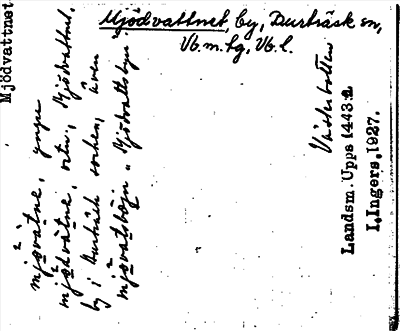 Mjödvattnet
Mjödvattnet by, Burträsk sn,
Vb.m.hg, Vb.l.
mjøvatne, yngre
mjødvatne, vetn, Mjödvattnet,
by i Burträsk socken, även
mjøvatsbyn, Mjödvattsbyn
Västerbotten
Landsm. Upps 1443:2
I. Ingers, 1927.